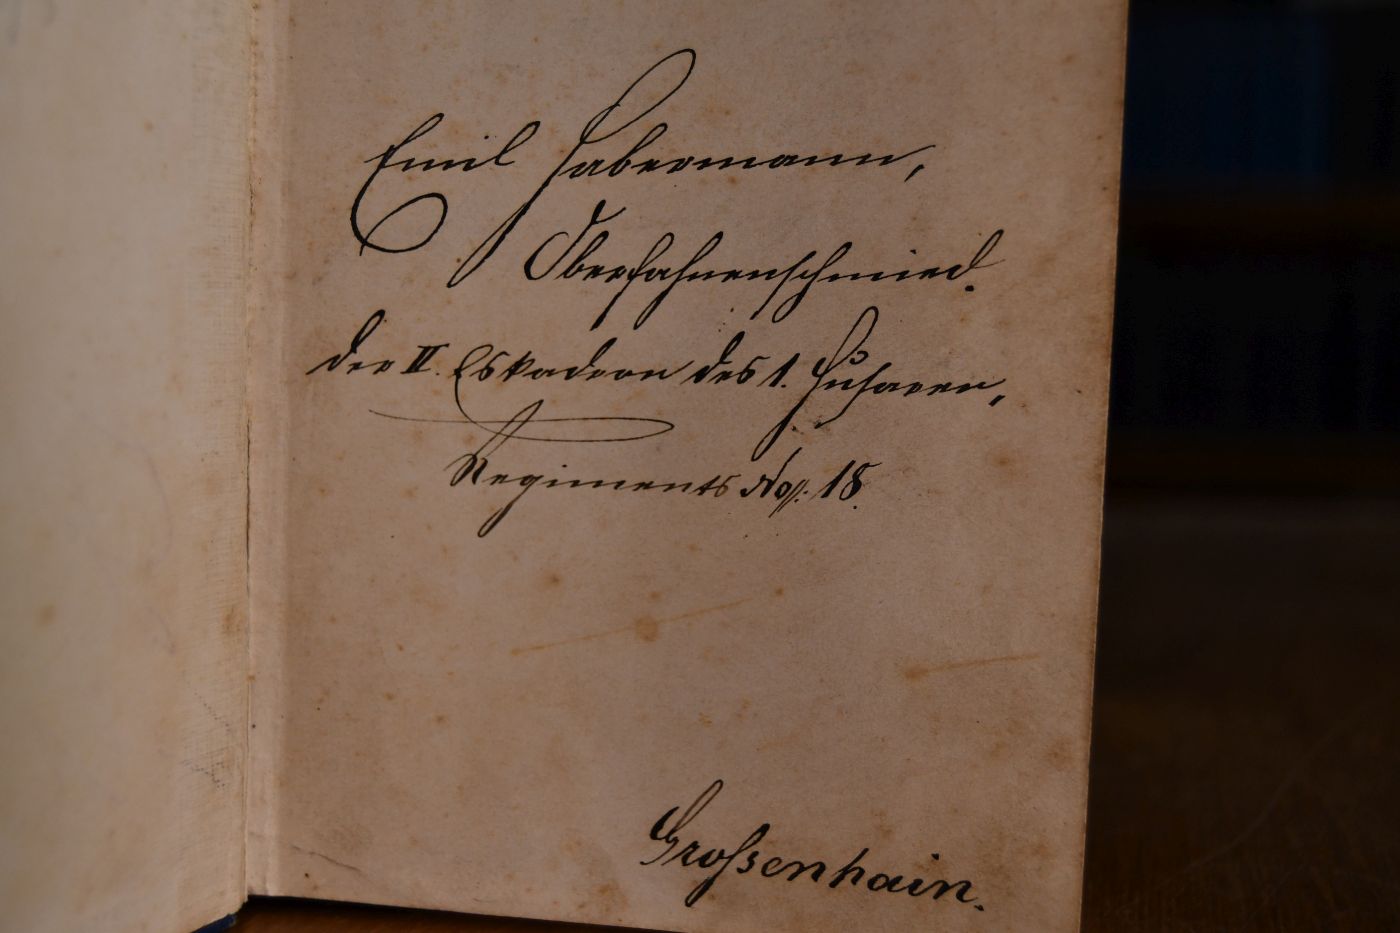 Emil Habermann,
Oberfahnenschmied.
der II. Eskadron des 1. Husaren,
Regiments No. 18.
Großenhain.